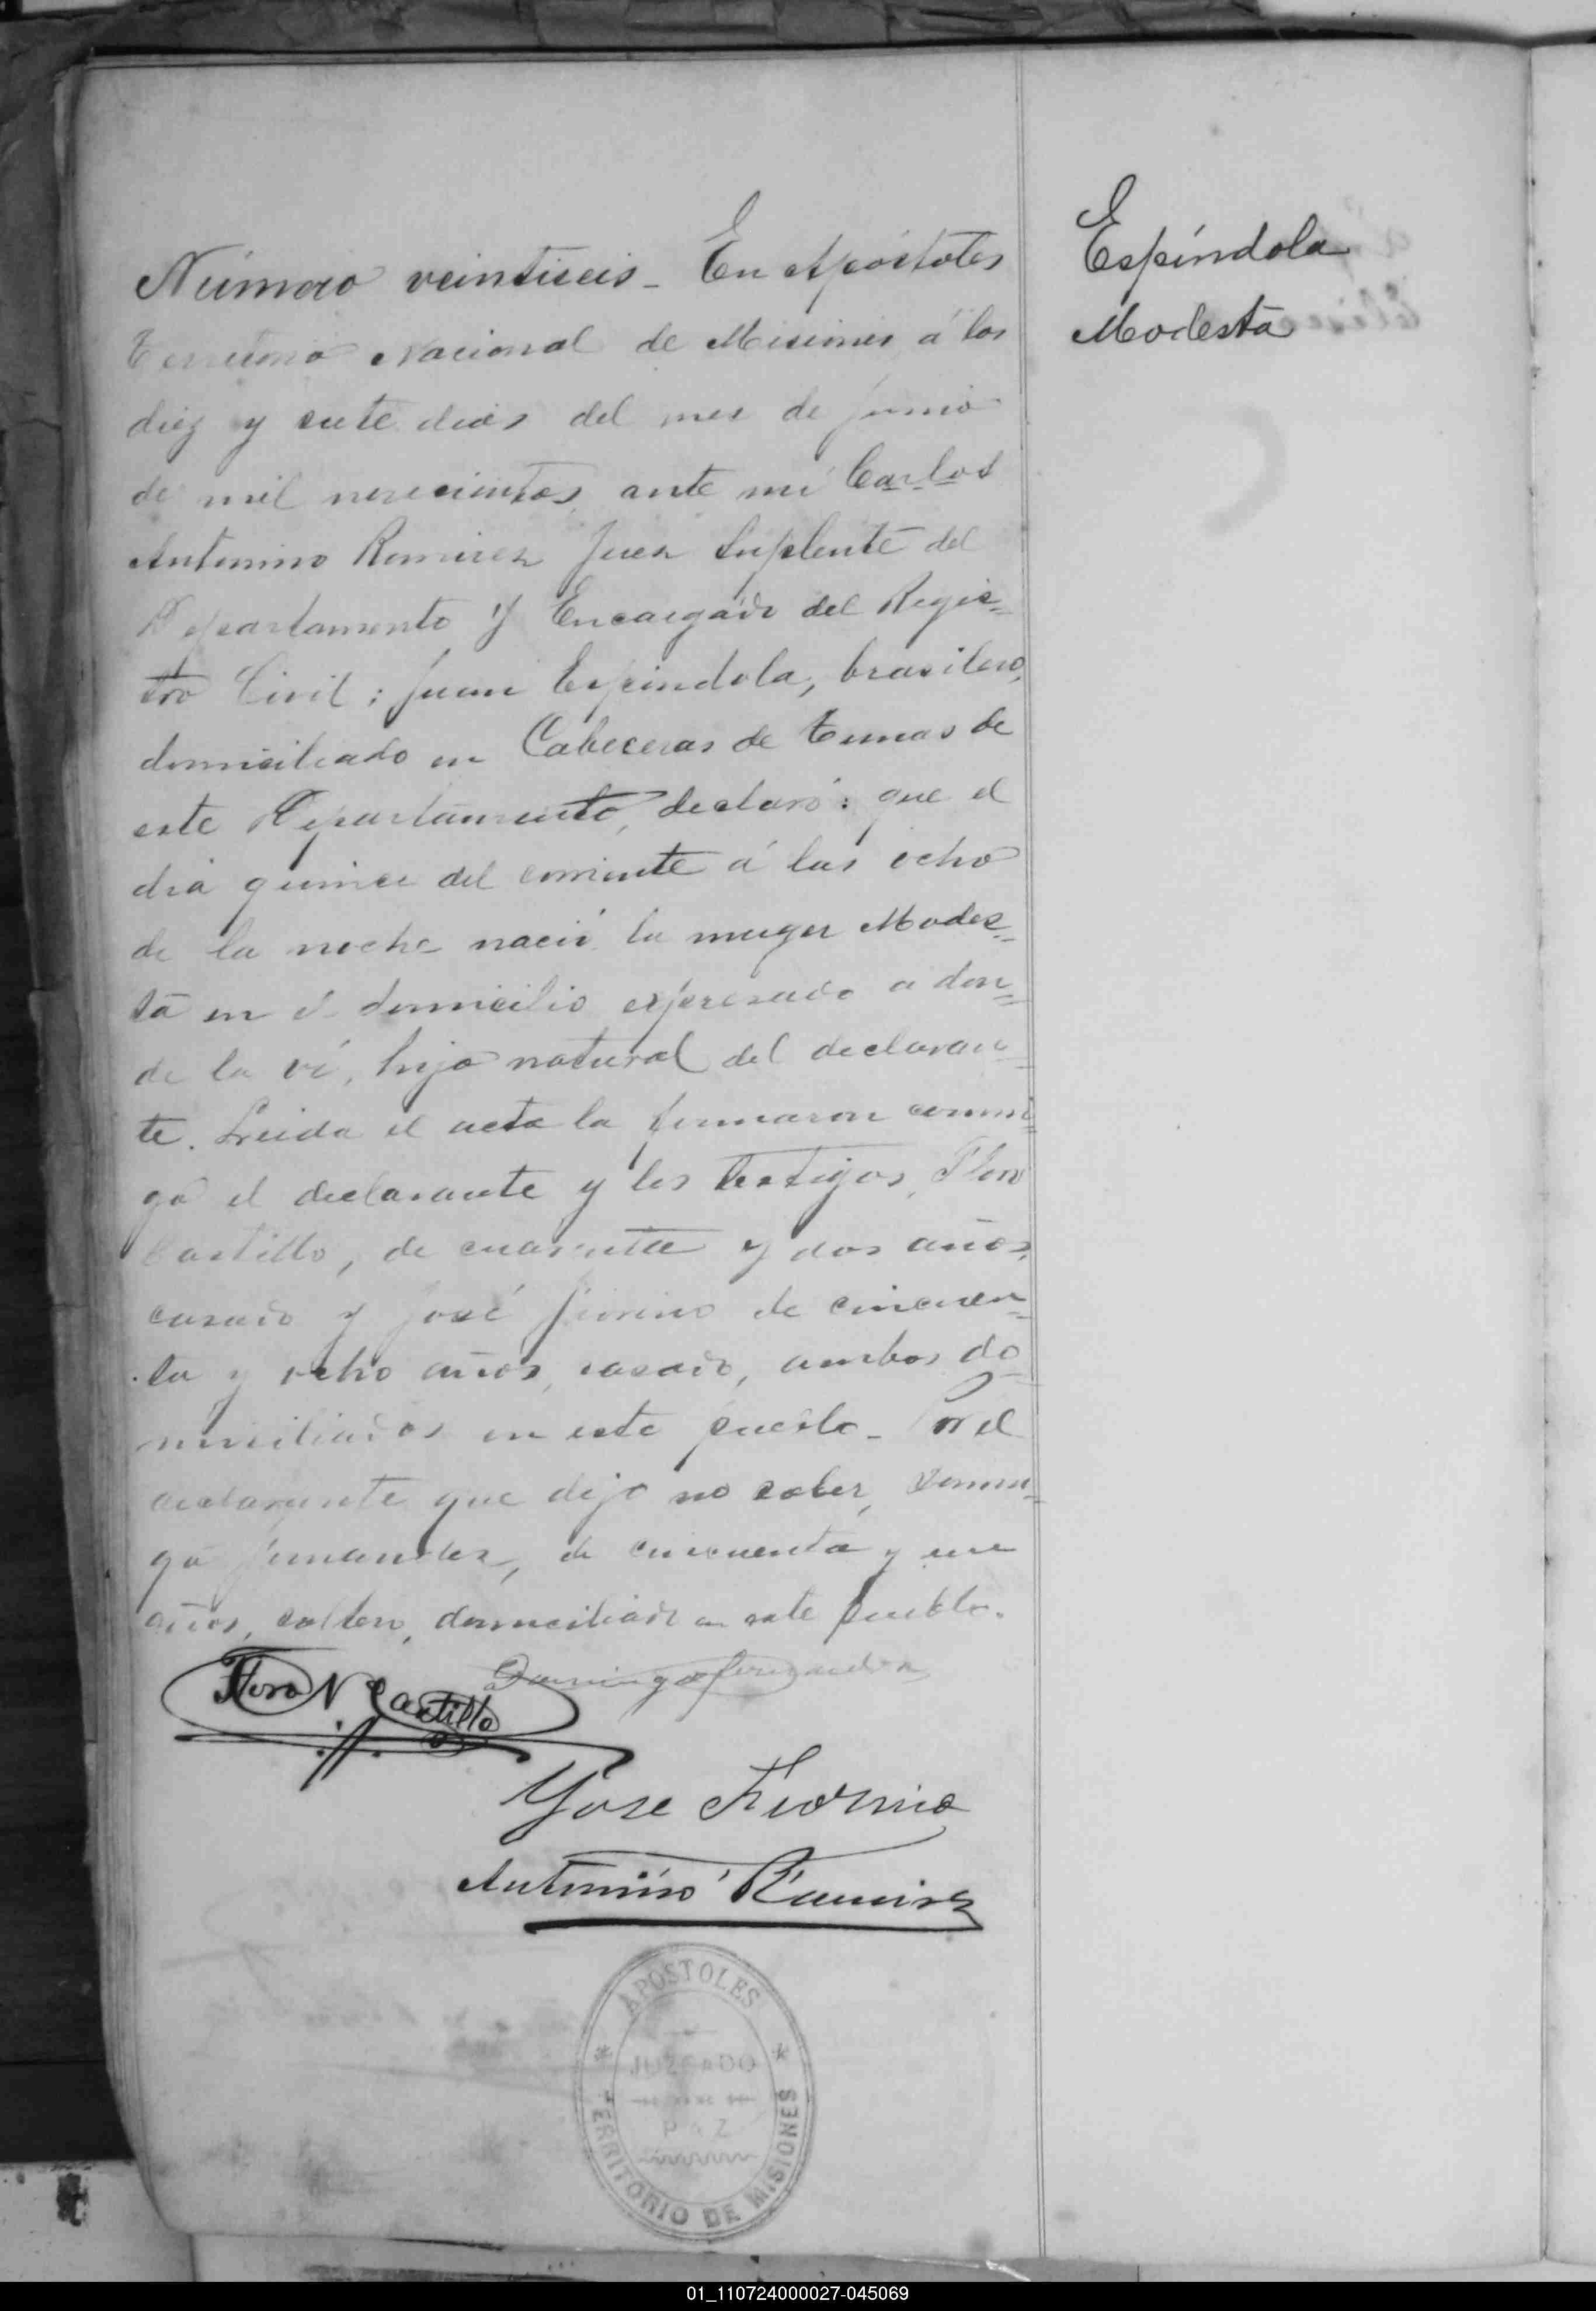 Número veintiseis - En Apóstoles
Territorio Nacional de Misiones á los
diez y siete dias del mes de junio
de mil novecientos, ante mi Carlos
Antonino Ramirez Juez Suplente del
Departamento y Encargado del Regis=
tro Civil: Juan Espindola, brasilero,
domiciliado en Cabeceras de Tunas de
este Departamento, declaró: que el
dia quince del corriente á las ocho
de la noche nació la muger Modes=
ta en el domicilio expresado a don=
de la ví, hija natural del declaran=
te. Leida el acta la firmaron conmi=
go el declarante y los testigos, Floro
Castillo, de cuarenta y dos años,
casado y José Fiorino de cincuen=
ta y ocho años, casado, ambos do=
miciliados en este pueblo - Por el
declarante que dijo no saber, Domin=
go Fernandez, de cincuenta y un
años, soltero, domiciliado en este pueblo.
Floro N Castillo
Domingo fernandez
Jose Fiornio
Antonino Ramirez
APOSTOLES
JUZGADO
PAZ
TERRITORIO DE MISIONES
Espíndola
Modesta
01_110724000027-045069